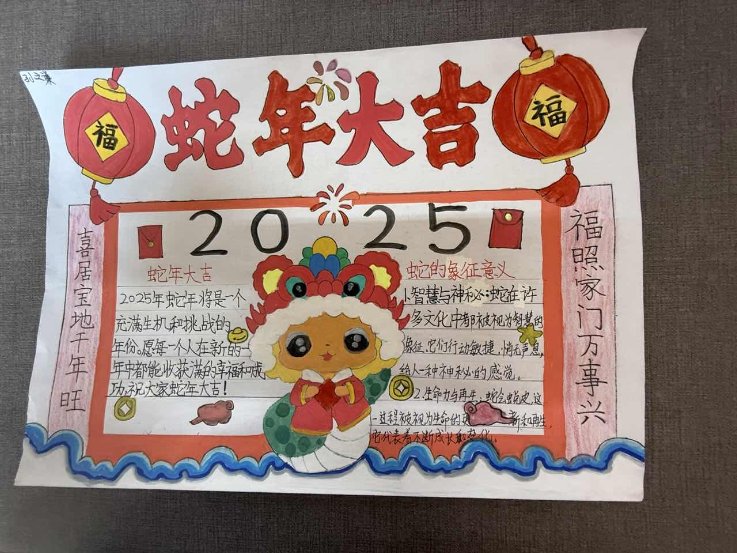 蛇年大吉
福
福
2025
喜居宝地千年旺
福照家门万事兴
蛇年大吉
2025年蛇年将是一个
充满生机和挑战的
年份。愿每一个人在新的一
年中都能收获满的幸福和成
功，祝大家蛇年大吉！
蛇的象征意义
1.智慧与神秘：蛇在许
多文化中都被视为智慧的
象征，它们行动敏捷，悄无声息，
给人一种神秘的感觉。
2.生命力与再生，蛇会蜕皮这
一过程被视为生命的 新和再生，
它代表着不断成长和变化。